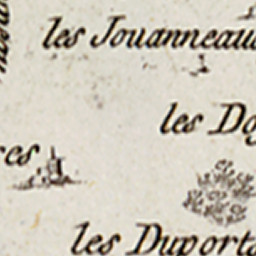 les Jouanneau
les Do
res
les Duports